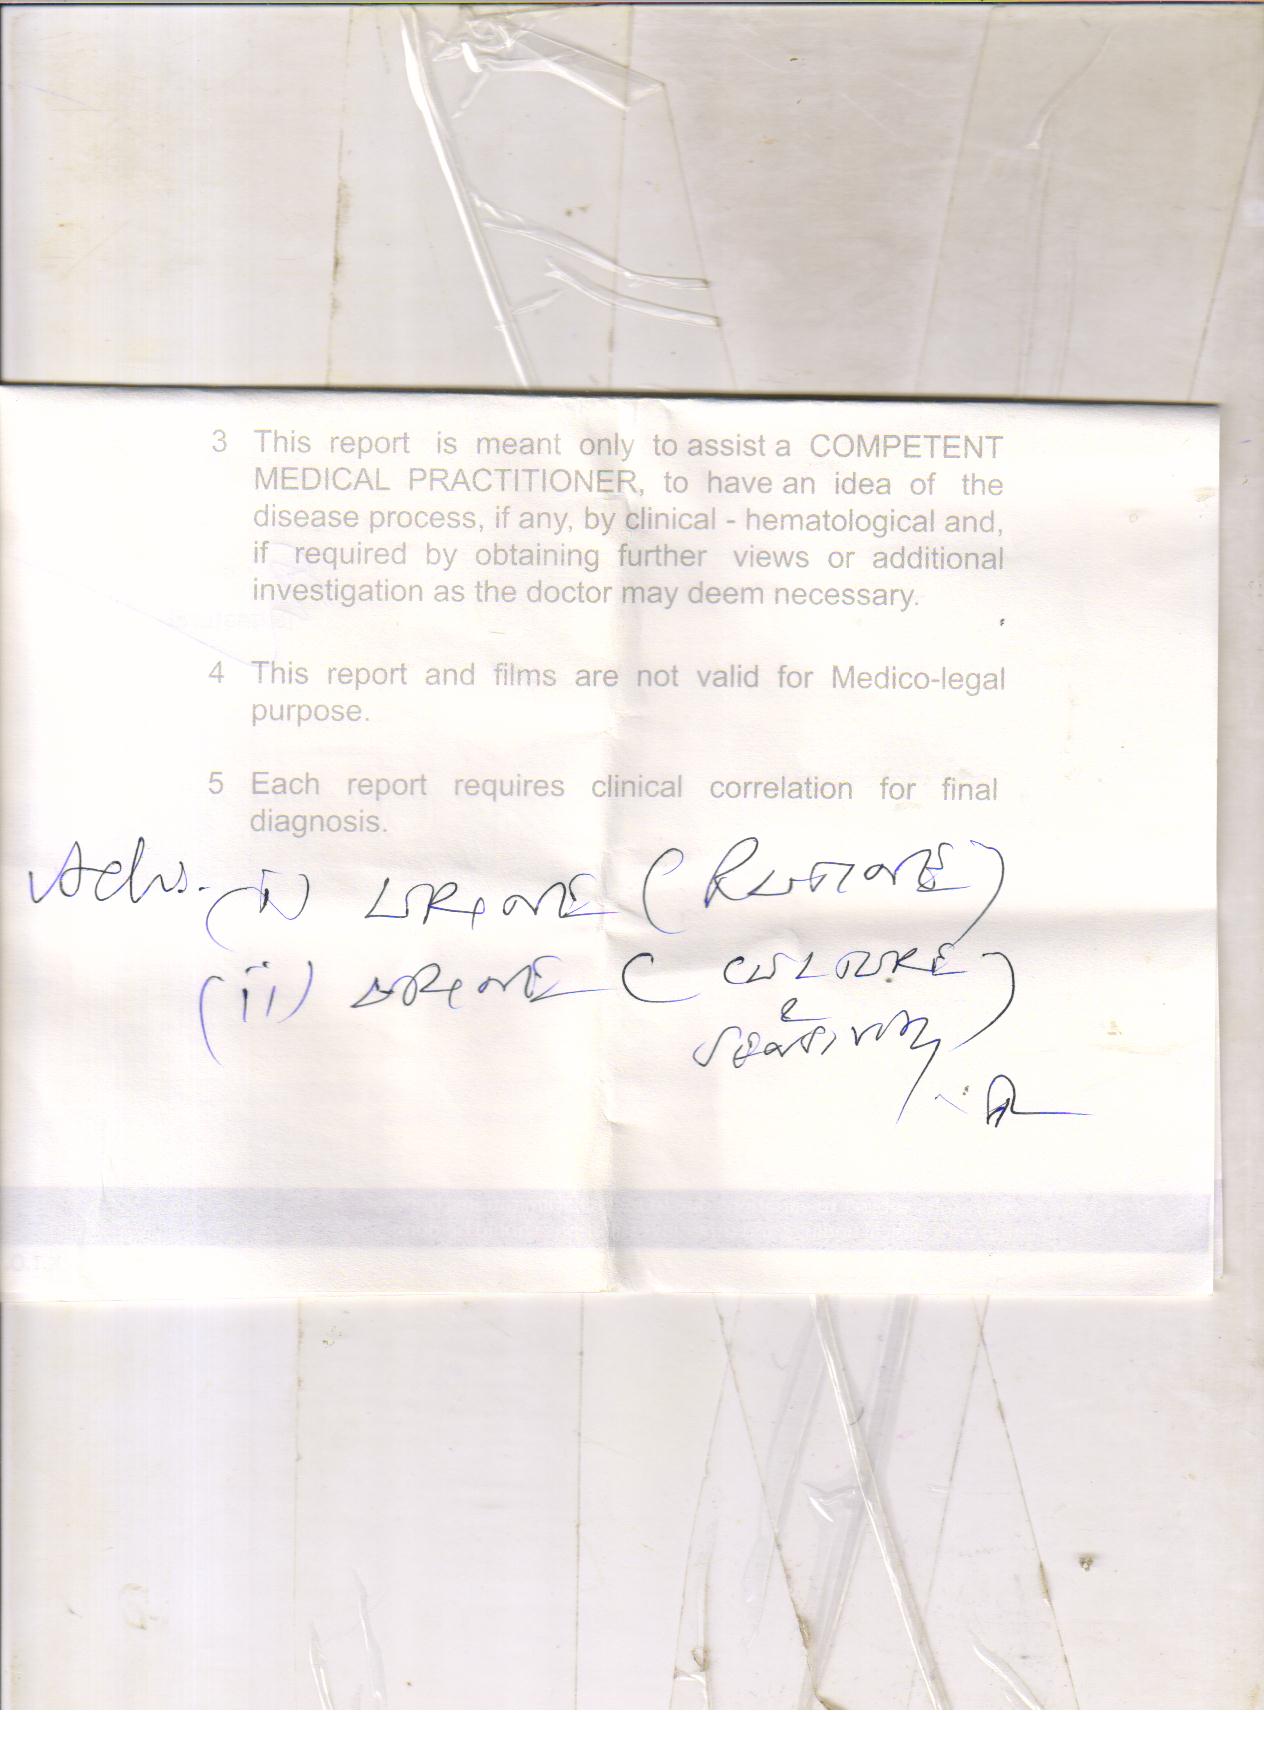 3 This report is meant only to assist a COMPETENT
MEDICAL PRACTITIONER, to have an idea of the
disease process, if any, by clinical - hematological and,
if required by obtaining further views or additional
investigation as the doctor may deem necessary.
4 This report and films are not valid for Medico-legal
purpose.
5 Each report requires clinical correlation for final
diagnosis.
Adv. (i) URINE (ROUTINE)
(ii) URINE (CULTURE
&
SENSITIVITY)